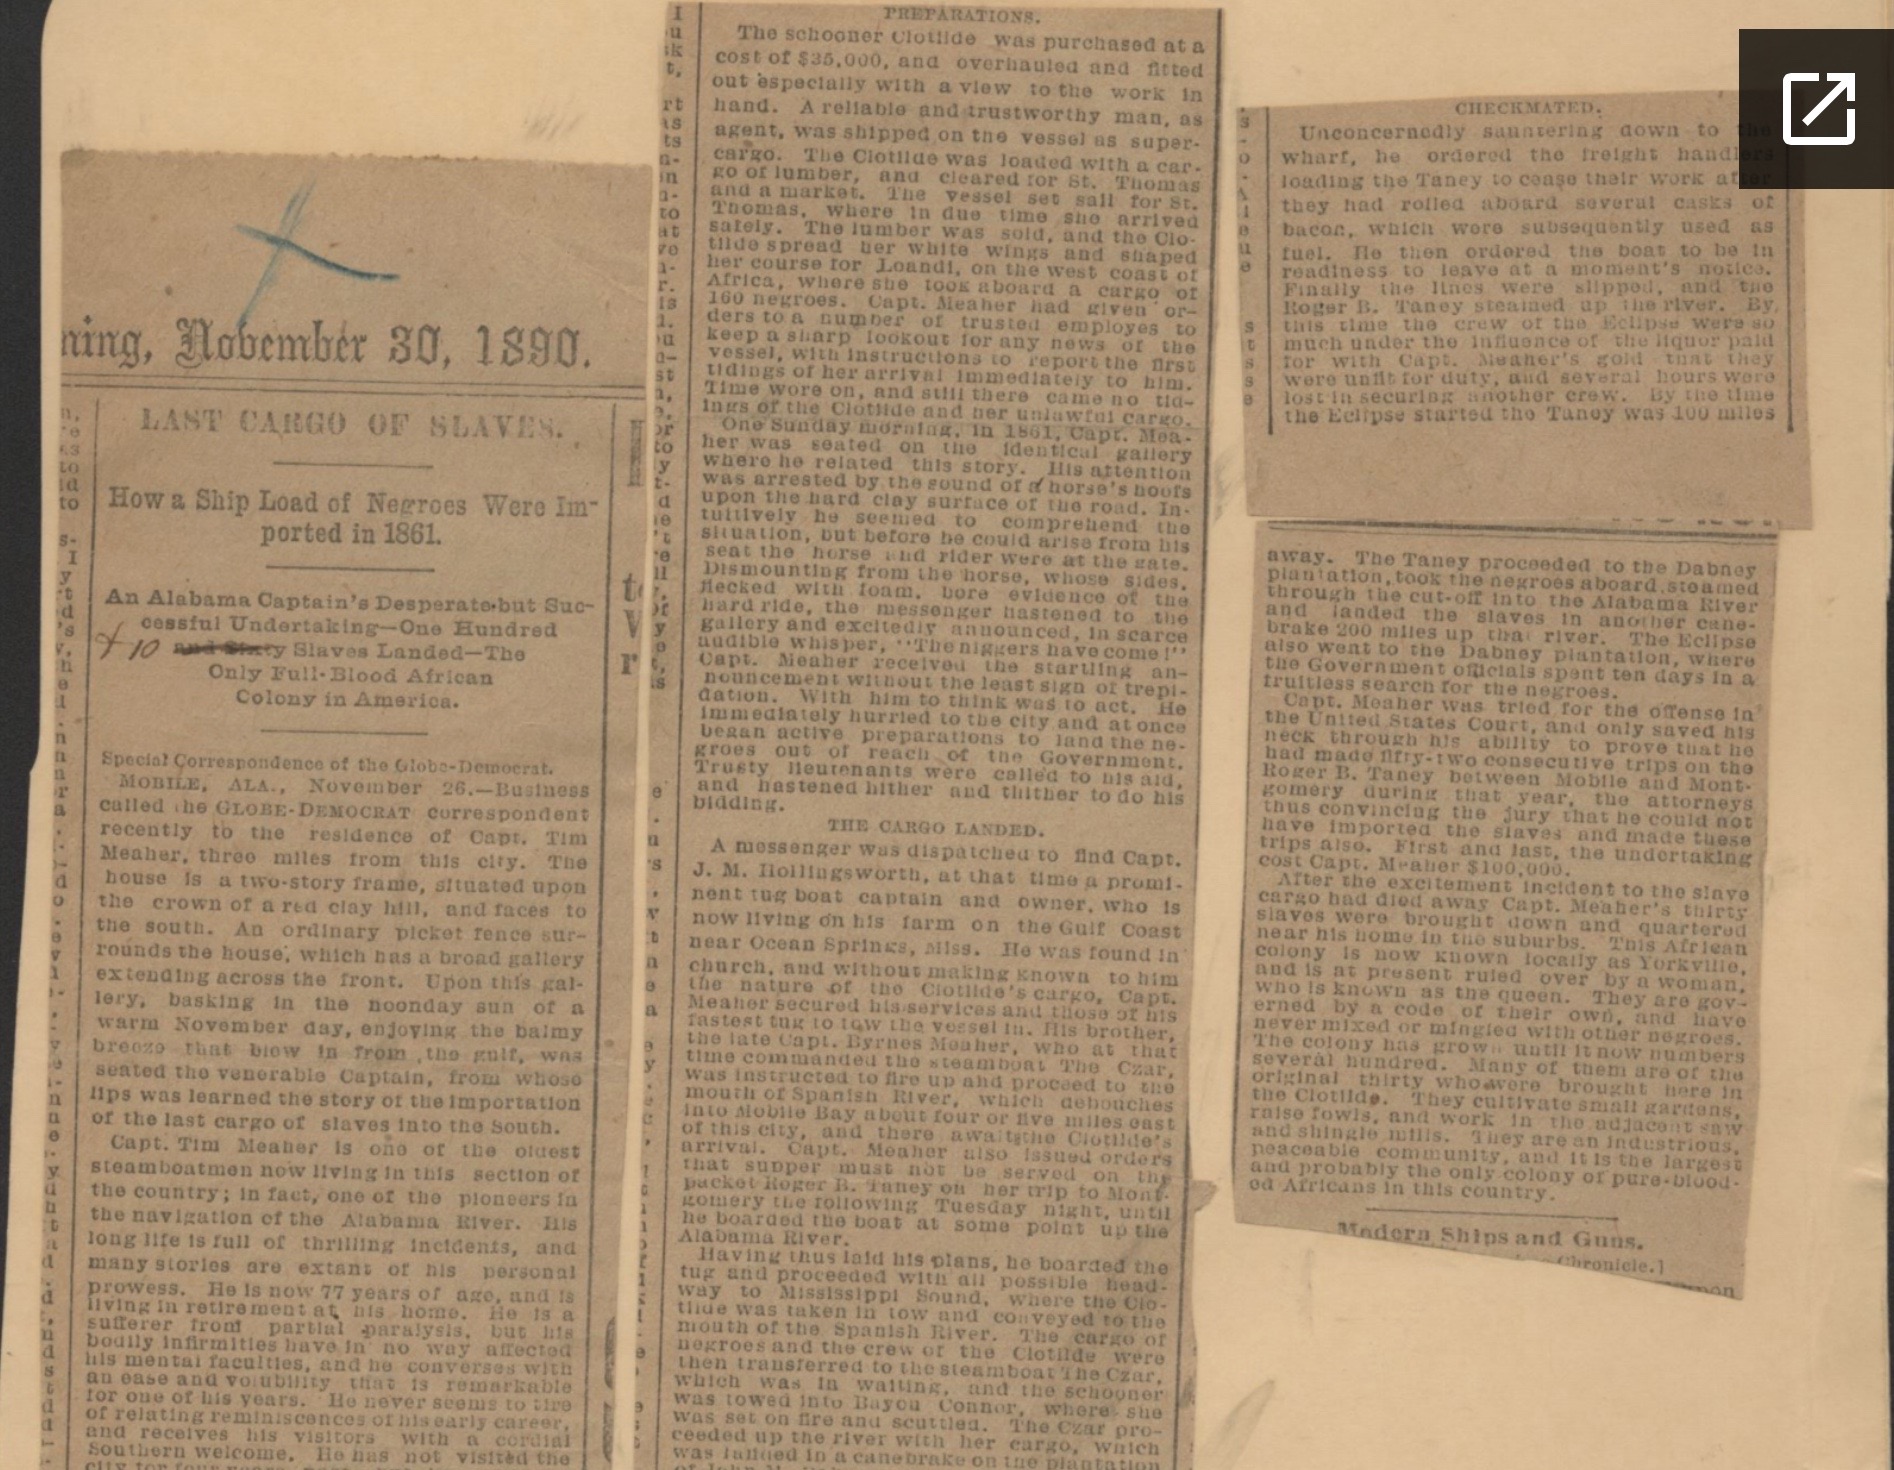 ning, November 30, 1890.
LAST CARGO OF SLAVES.
How a Ship Load of Negroes Were Im-
ported in 1861.
An Alabama Captain's Desperate but Suc-
cessful Undertaking—One Hundred
+10 and Sixty Slaves Landed—The
Only Full-Blood African
Colony in America.
Special Correspondence of the Globe-Democrat.
MOBILE, ALA., November 26.—Business
called the GLOBE-DEMOCRAT correspondent
recently to the residence of Capt. Tim
Meaher, three miles from this city. The
house is a two-story frame, situated upon
the crown of a red clay hill, and faces to
the south. An ordinary picket fence sur-
rounds the house, which has a broad gallery
extending across the front. Upon this gal-
lery, basking in the noonday sun of a
warm November day, enjoying the balmy
breeze that blew in from the gulf, was
seated the venerable Captain, from whose
lips was learned the story of the importation
of the last cargo of slaves into the South.
Capt. Tim Meaher is one of the oldest
steamboatmen now living in this section of
the country; in fact, one of the pioneers in
the navigation of the Alabama River. His
long life is full of thrilling incidents, and
many stories are extant of his personal
prowess. He is now 77 years of age, and is
living in retirement at his home. He is a
sufferer from partial paralysis, but his
bodily infirmities have in no way affected
his mental faculties, and he converses with
an ease and volubility that is remarkable
for one of his years. He never seems to tire
of relating reminiscences of his early career,
and receives his visitors with a cordial
Southern welcome. He has not visited the
PREPARATIONS.
The schooner Clotilde was purchased at a
cost of $35,000, and overhauled and fitted
out especially with a view to the work in
hand. A reliable and trustworthy man, as
agent, was shipped on the vessel as super-
cargo. The Clotilde was loaded with a car-
go of lumber, and cleared for St. Thomas
and a market. The vessel set sail for St.
Thomas, where in due time she arrived
safely. The lumber was sold, and the Clo-
tilde spread her white wings and shaped
her course for Loandi, on the west coast of
Africa, where she took aboard a cargo of
160 negroes. Capt. Meaher had given or-
ders to a number of trusted employes to
keep a sharp lookout for any news of the
vessel, with instructions to report the first
tidings of her arrival immediately to him.
Time wore on, and still there came no tid-
ings of the Clotilde and her unlawful cargo.
One Sunday morning, in 1861, Capt. Mea-
her was seated on the identical gallery
where he related this story. His attention
was arrested by the sound of a horse's hoofs
upon the hard clay surface of the road. In-
tuitively he seemed to comprehend the
situation, but before he could arise from his
seat the horse and rider were at the gate.
Dismounting from the horse, whose sides,
flecked with foam, bore evidence of the
hard ride, the messenger hastened to the
gallery and excitedly announced, in scarce
audible whisper, "The niggers have come!"
Capt. Meaher received the startling an-
nouncement without the least sign of trepi-
dation. With him to think was to act. He
immediately hurried to the city and at once
began active preparations to land the ne-
groes out of reach of the Government.
Trusty lieutenants were called to his aid,
and hastened hither and thither to do his
bidding.
THE CARGO LANDED.
A messenger was dispatched to find Capt.
J. M. Hollingsworth, at that time a promi-
nent tug boat captain and owner, who is
now living on his farm on the Gulf Coast
near Ocean Springs, Miss. He was found in
church, and without making known to him
the nature of the Clotilde's cargo, Capt.
Meaher secured his services and those of his
fastest tug to tow the vessel in. His brother,
the late Capt. Byrnes Meaher, who at that
time commanded the steamboat The Czar,
was instructed to fire up and proceed to the
mouth of Spanish River, which debouches
into Mobile Bay about four or five miles east
of this city, and there await the Clotilde's
arrival. Capt. Meaher also issued orders
that supper must not be served on the
packet Roger B. Taney on her trip to Mont-
gomery the following Tuesday night, until
he boarded the boat at some point up the
Alabama River.
Having thus laid his plans, he boarded the
tug and proceeded with all possible head-
way to Mississippi Sound, where the Clo-
tilde was taken in tow and conveyed to the
mouth of the Spanish River. The cargo of
negroes and the crew of the Clotilde were
then transferred to the steamboat The Czar,
which was in waiting, and the schooner
was towed into Bayou Connor, where she
was set on fire and scuttled. The Czar pro-
ceeded up the river with her cargo, which
was landed in a canebrake on the plantation
CHECKMATED.
Unconcernedly sauntering down to the
wharf, he ordered the freight handlers
loading the Taney to cease their work after
they had rolled aboard several casks of
bacon, which were subsequently used as
fuel. He then ordered the boat to be in
readiness to leave at a moment's notice.
Finally the lines were slipped, and the
Roger B. Taney steamed up the river. By
this time the crew of the Eclipse were so
much under the influence of the liquor paid
for with Capt. Meaher's gold that they
were unfit for duty, and several hours were
lost in securing another crew. By the time
the Eclipse started the Taney was 100 miles
away. The Taney proceeded to the Dabney
plantation, took the negroes aboard, steamed
through the cut-off into the Alabama River
and landed the slaves in another cane-
brake 200 miles up that river. The Eclipse
also went to the Dabney plantation, where
the Government officials spent ten days in a
fruitless search for the negroes.
Capt. Meaher was tried for the offense in
the United States Court, and only saved his
neck through his ability to prove that he
had made fifty-two consecutive trips on the
Roger B. Taney between Mobile and Mont-
gomery during that year, the attorneys
thus convincing the jury that he could not
have imported the slaves and made these
trips also. First and last, the undertaking
cost Capt. Meaher $100,000.
After the excitement incident to the slave
cargo had died away Capt. Meaher's thirty
slaves were brought down and quartered
near his home in the suburbs. This African
colony is now known locally as Yorkville,
and is at present ruled over by a woman,
who is known as the queen. They are gov-
erned by a code of their own, and have
never mixed or mingled with other negroes.
The colony has grown until it now numbers
several hundred. Many of them are of the
original thirty who were brought here in
the Clotilde. They cultivate small gardens,
raise fowls, and work in the adjacent saw
and shingle mills. They are an industrious,
peaceable community, and it is the largest
and probably the only colony of pure-blood-
ed Africans in this country.
Modern Ships and Guns.
Chronicle.]